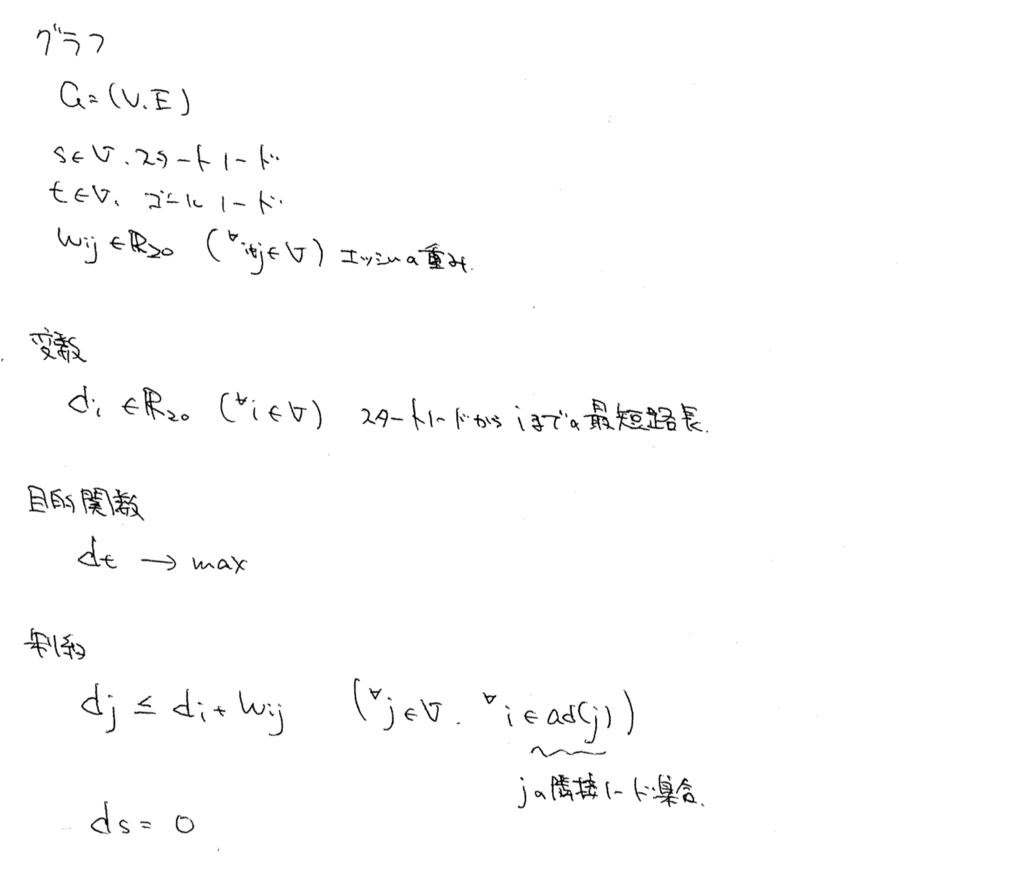 グラフ
G=(V.E)
s∈V.スタートノード.
t∈V. ゴールノード.
wij∈ℝ≥0 (∀i≠j∈V) エッジの重み.
変数
di∈ℝ≥0 (∀i∈V) スタートノードからiまでの最短路長.
目的関数
dt → max
制約
dj ≤ di+wij (∀j∈V. ∀i∈ad(j))
jの隣接ノード集合.
ds=0